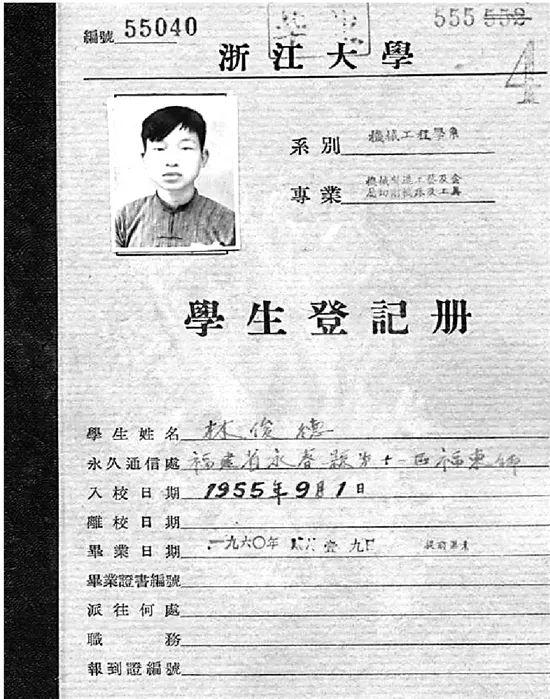 編號 55040
畢業
555 552
4
浙江大學
系別 機械工程學系
專業 機械製造工藝及金
屬切削機床及工具
學生登記册
學生姓名 林俊德
永久通信處 福建省永春縣第十一區福東鄉
入校日期 1955年9月1日
離校日期
畢業日期 一九六〇年 九日 提前畢業
畢業證書編號
派往何處
職務
報到證編號